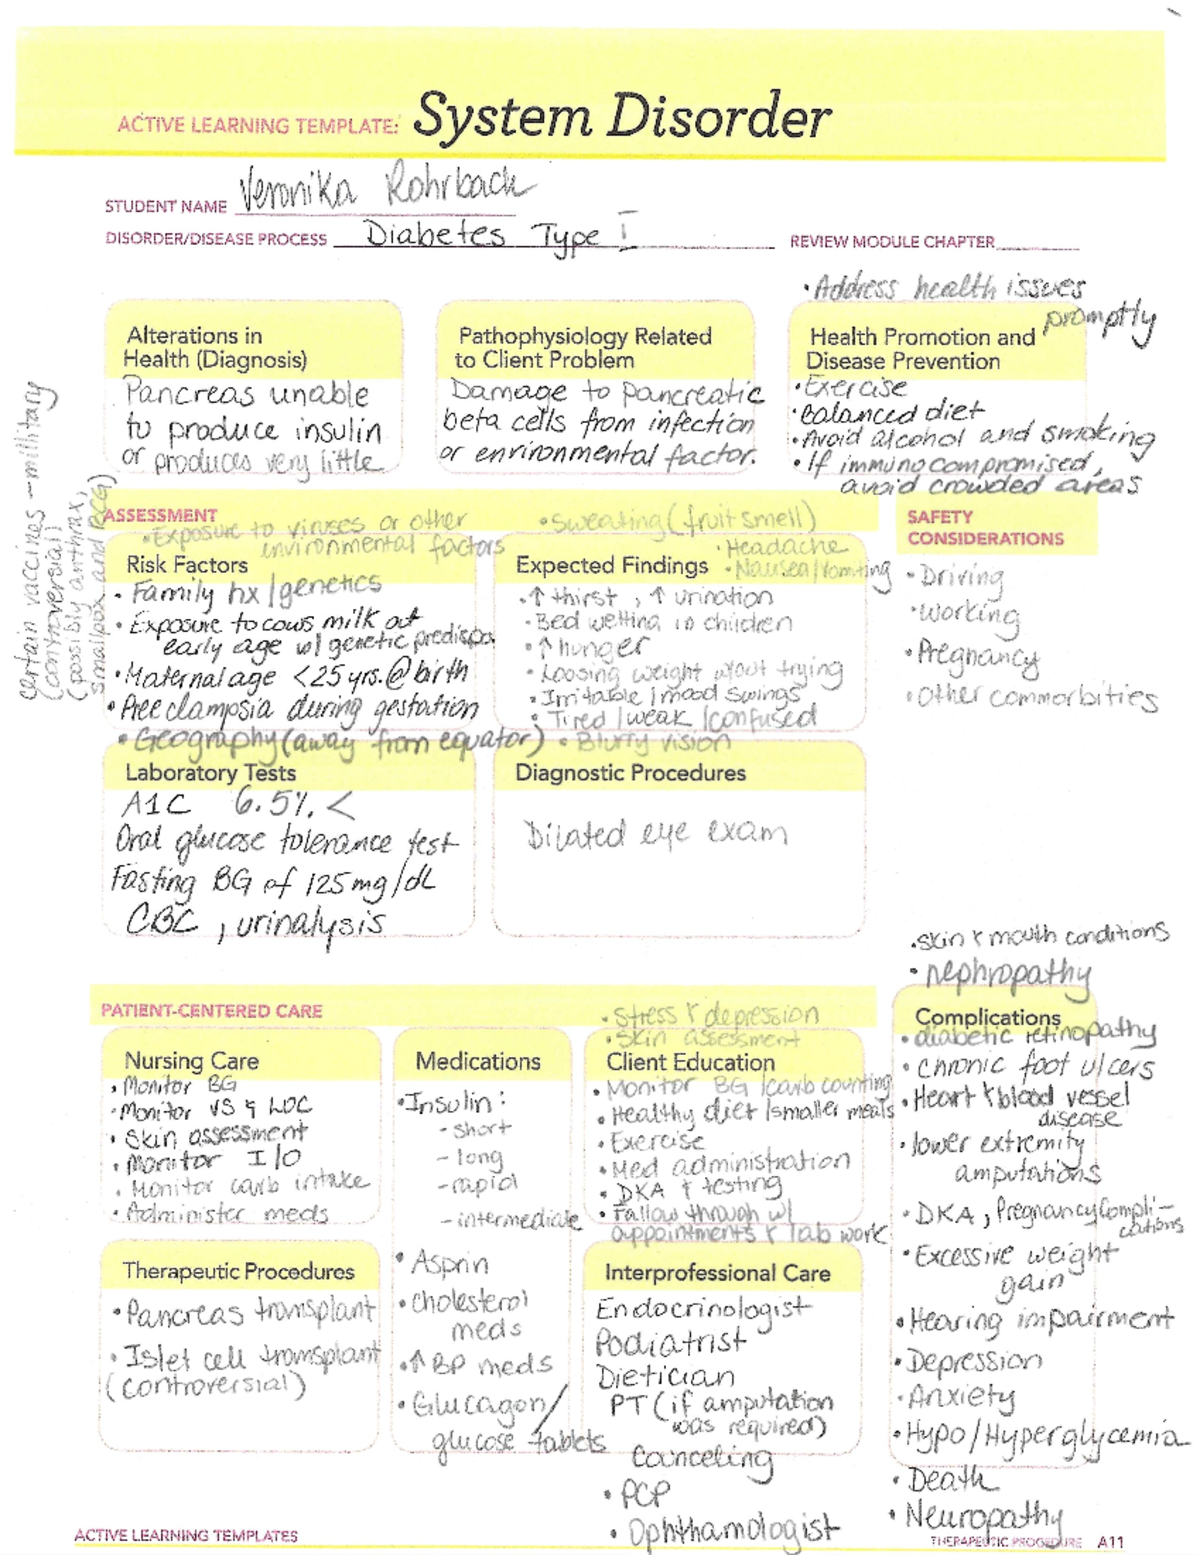 ACTIVE LEARNING TEMPLATE: System Disorder
STUDENT NAME Veronika Rohrback
DISORDER/DISEASE PROCESS Diabetes Type I
REVIEW MODULE CHAPTER
Alterations in
Health (Diagnosis)
Pancreas unable
to produce insulin
or produces very little
Pathophysiology Related
to Client Problem
Damage to pancreatic
beta cells from infection
or environmental factor.
• Address health issues
promptly
Health Promotion and
Disease Prevention
• Exercise
• Balanced diet
• Avoid alcohol and smoking
• If immunocompromised,
avoid crowded areas
certain vaccines - millitary
(controversial)
(possibly anthrax,
smallpox and BCG)
ASSESSMENT
• Exposure to viruses or other
environmental factors
Risk Factors
• Family hx/genetics
• Exposure to cows milk at
early age w/ genetic predispo.
• Maternal age <25 yrs. @ birth
• Preeclampsia during gestation
• Geography (away from equator)
• Sweating (fruit smell)
• Headache
• Nausea/vomiting
Expected Findings
• ↑ thirst, ↑ urination
• Bed wetting in children
• ↑ hunger
• Loosing weight w/out trying
• Irritable/mood swings
• Tired/weak/confused
• Blurry vision
SAFETY
CONSIDERATIONS
• Driving
• Working
• Pregnancy
• Other commorbities
Laboratory Tests
A1C 6.5% <
Oral glucose tolerance test
Fasting BG of 125 mg/dL
CBC, urinalysis
Diagnostic Procedures
Dilated eye exam
PATIENT-CENTERED CARE
Nursing Care
• Monitor BG
• Monitor VS & LOC
• Skin assessment
• Monitor I/O
• Monitor carb intake
• Administer meds
Medications
• Insulin:
- short
- long
- rapid
- intermediate
• Asprin
• cholesterol
meds
• ↑ BP meds
• Glucagon/
glucose tablets
• Stress & depression
• Skin assessment
Client Education
• Monitor BG/carb counting
• Healthy diet/smaller meals
• Exercise
• Med administration
• DKA & testing
• Follow through w/
appointments & lab work
Therapeutic Procedures
• Pancreas transplant
• Islet cell transplant
(controversial)
Interprofessional Care
Endocrinologist
Podiatrist
Dietician
PT (if amputation
was required)
Counceling
• PCP
• Ophthamologist
• skin & mouth conditions
• nephropathy
Complications
• diabetic retinopathy
• chronic foot ulcers
• Heart & blood vessel
disease
• lower extremity
amputations
• DKA, Pregnancy Compli-
cations
• Excessive weight
gain
• Hearing impairment
• Depression
• Anxiety
• Hypo/Hyperglycemia
• Death
• Neuropathy
ACTIVE LEARNING TEMPLATES
THERAPEUTIC PROCEDURE A11